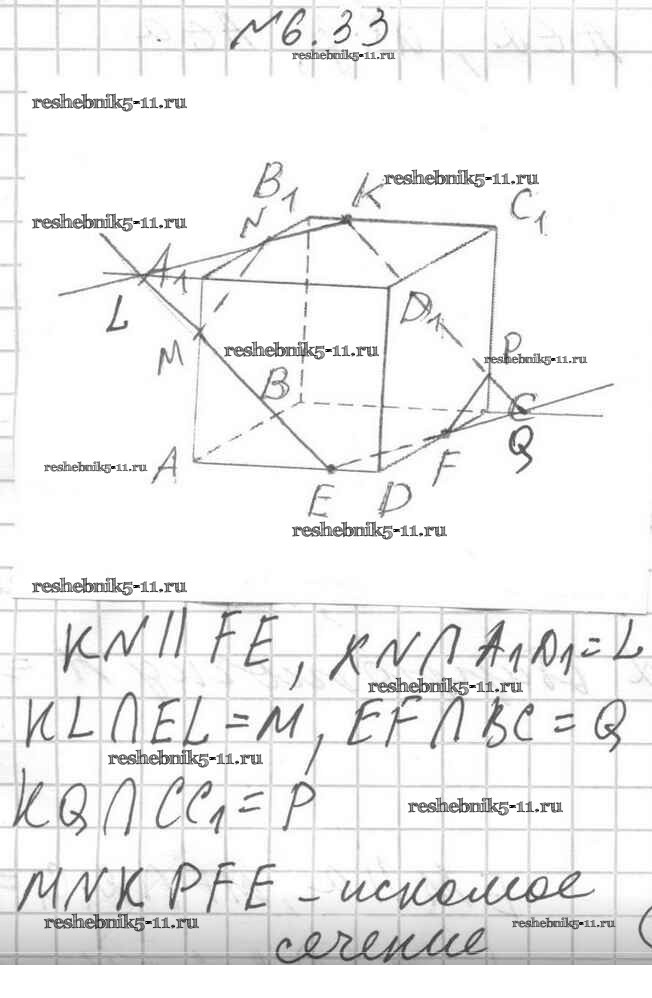 №6.33
reshebnik5-11.ru
reshebnik5-11.ru
B₁ K reshebnik5-11.ru
reshebnik5-11.ru N C₁
A₁
L D₁
M reshebnik5-11.ru P
reshebnik5-11.ru
B C
reshebnik5-11.ru A F Q
E D
reshebnik5-11.ru
reshebnik5-11.ru
KN||FE, KN∩A₁D₁=L
reshebnik5-11.ru
KL∩EL=M, EF∩BC=Q
reshebnik5-11.ru
KQ∩CC₁=P reshebnik5-11.ru
MNKPFE - искомое
reshebnik5-11.ru reshebnik5-11.ru
сечение